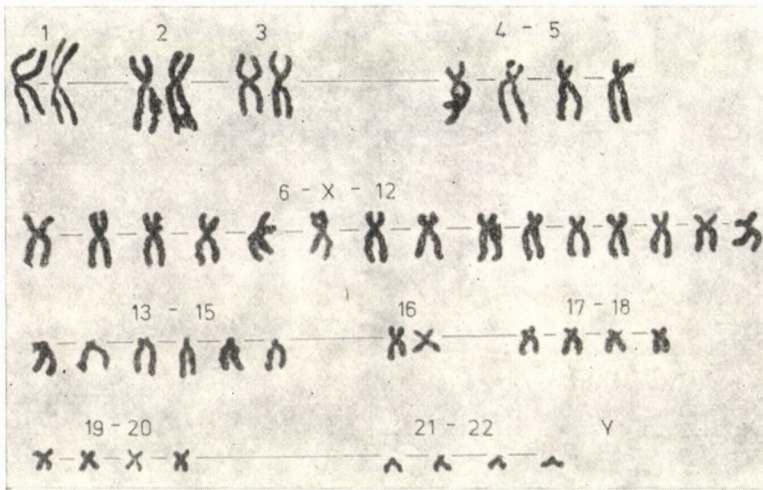 1 2 3 4 - 5
6 - X - 12
13 - 15 16 17 - 18
19 - 20 21 - 22 Y